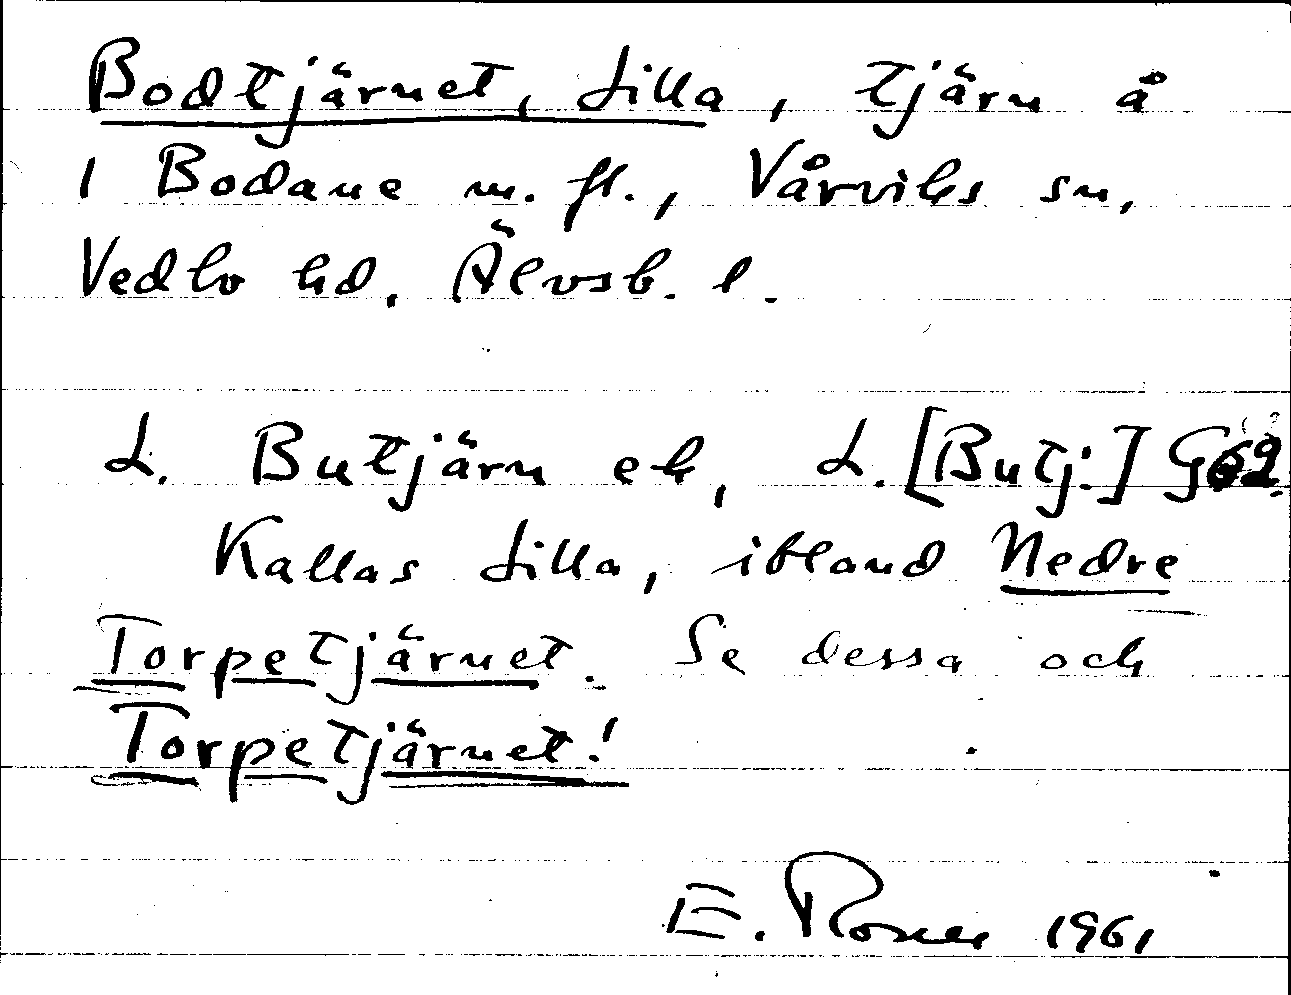 Bodtjärnet, Lilla, tjärn å
1 Bodane m. fl., Vårviks sn,
Vedbo hd. Älvsb. l.
L. Butjärn ek, L. [Butj:] G62
Kallas Lilla, ibland Nedre
Torpetjärnet. Se dessa och
Torpetjärnet!
E. Rosell 1961